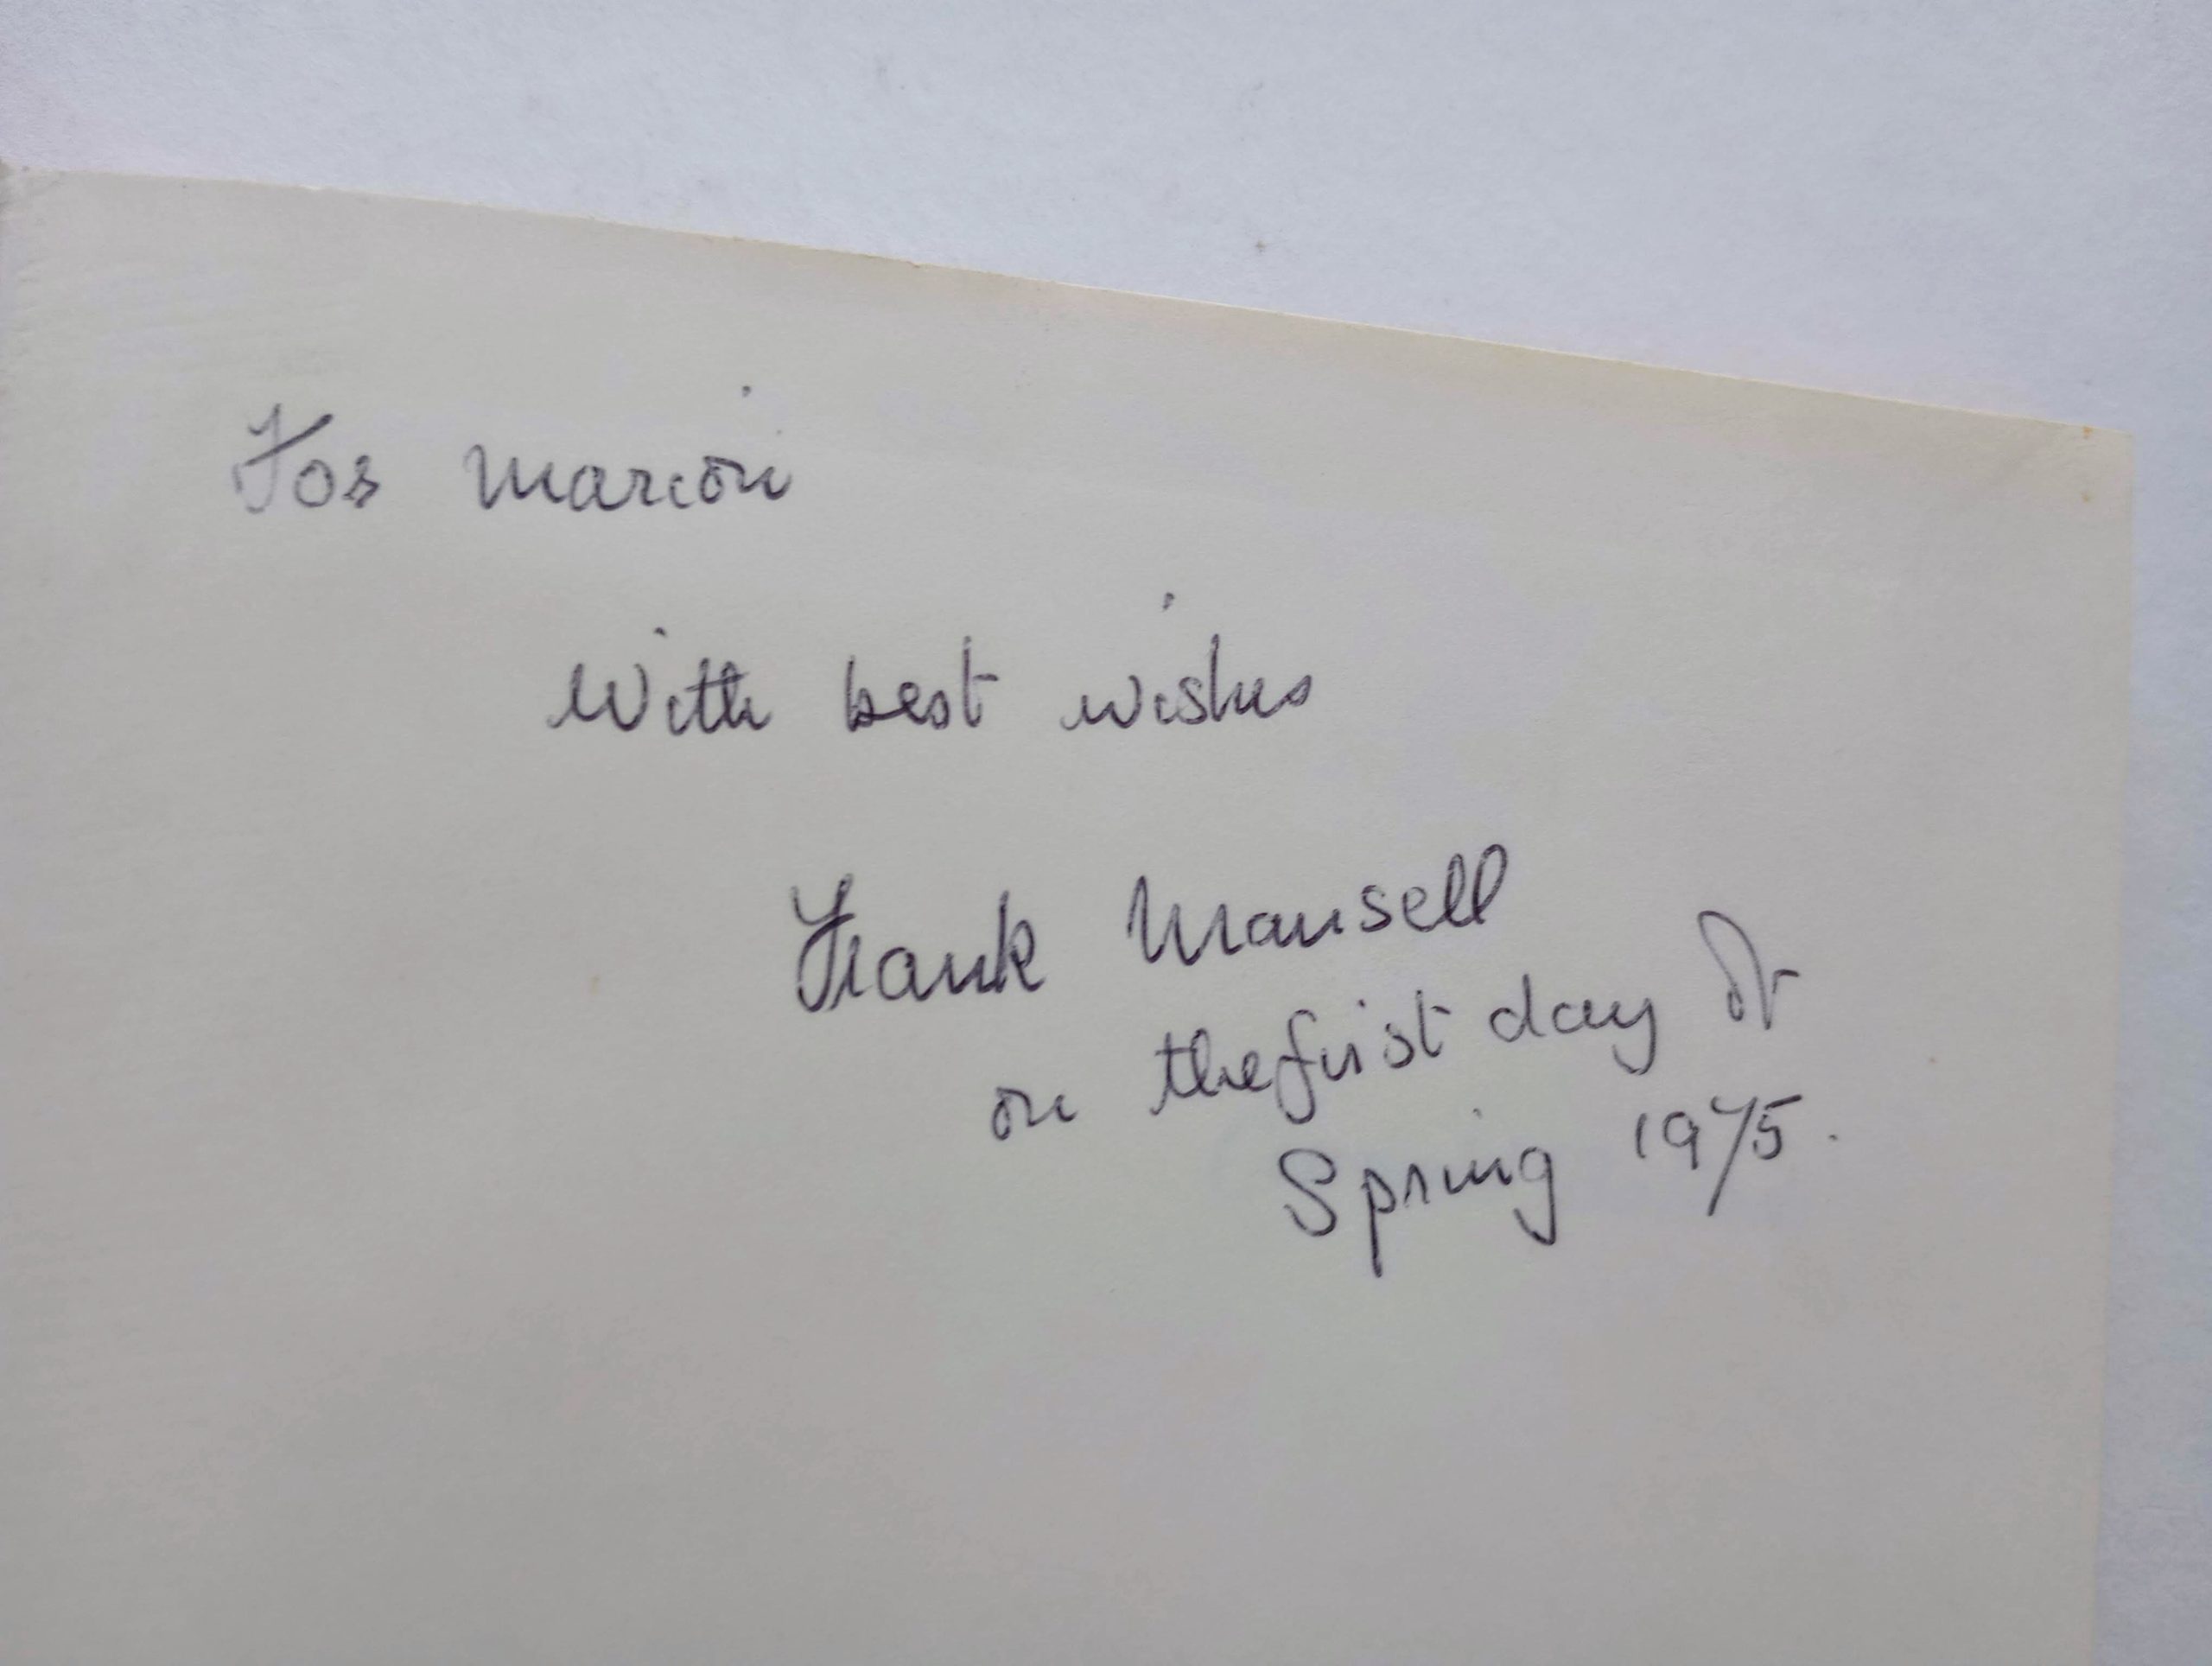 For Marion
With best wishes
Frank Mansell
on the first day of
Spring 1975.